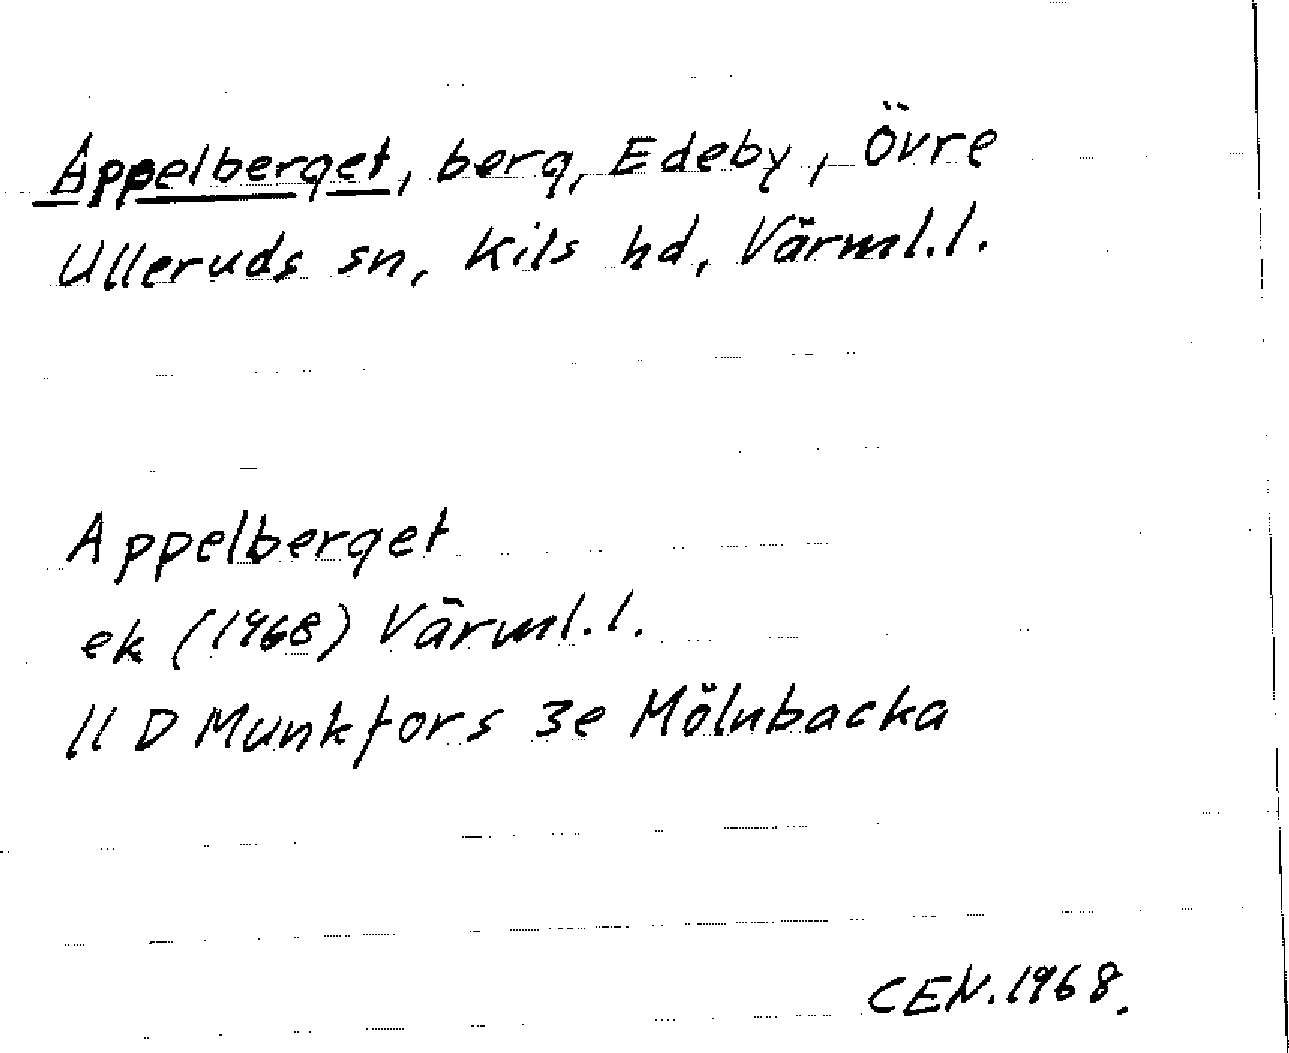 Appelberget, berg, Edeby, Övre
Ulleruds sn, Kils hd, Värml.l.
Appelberget
ek (1968) Värml.l.
11 D Munkfors 3e Mölnbacka
CEN. 1968.